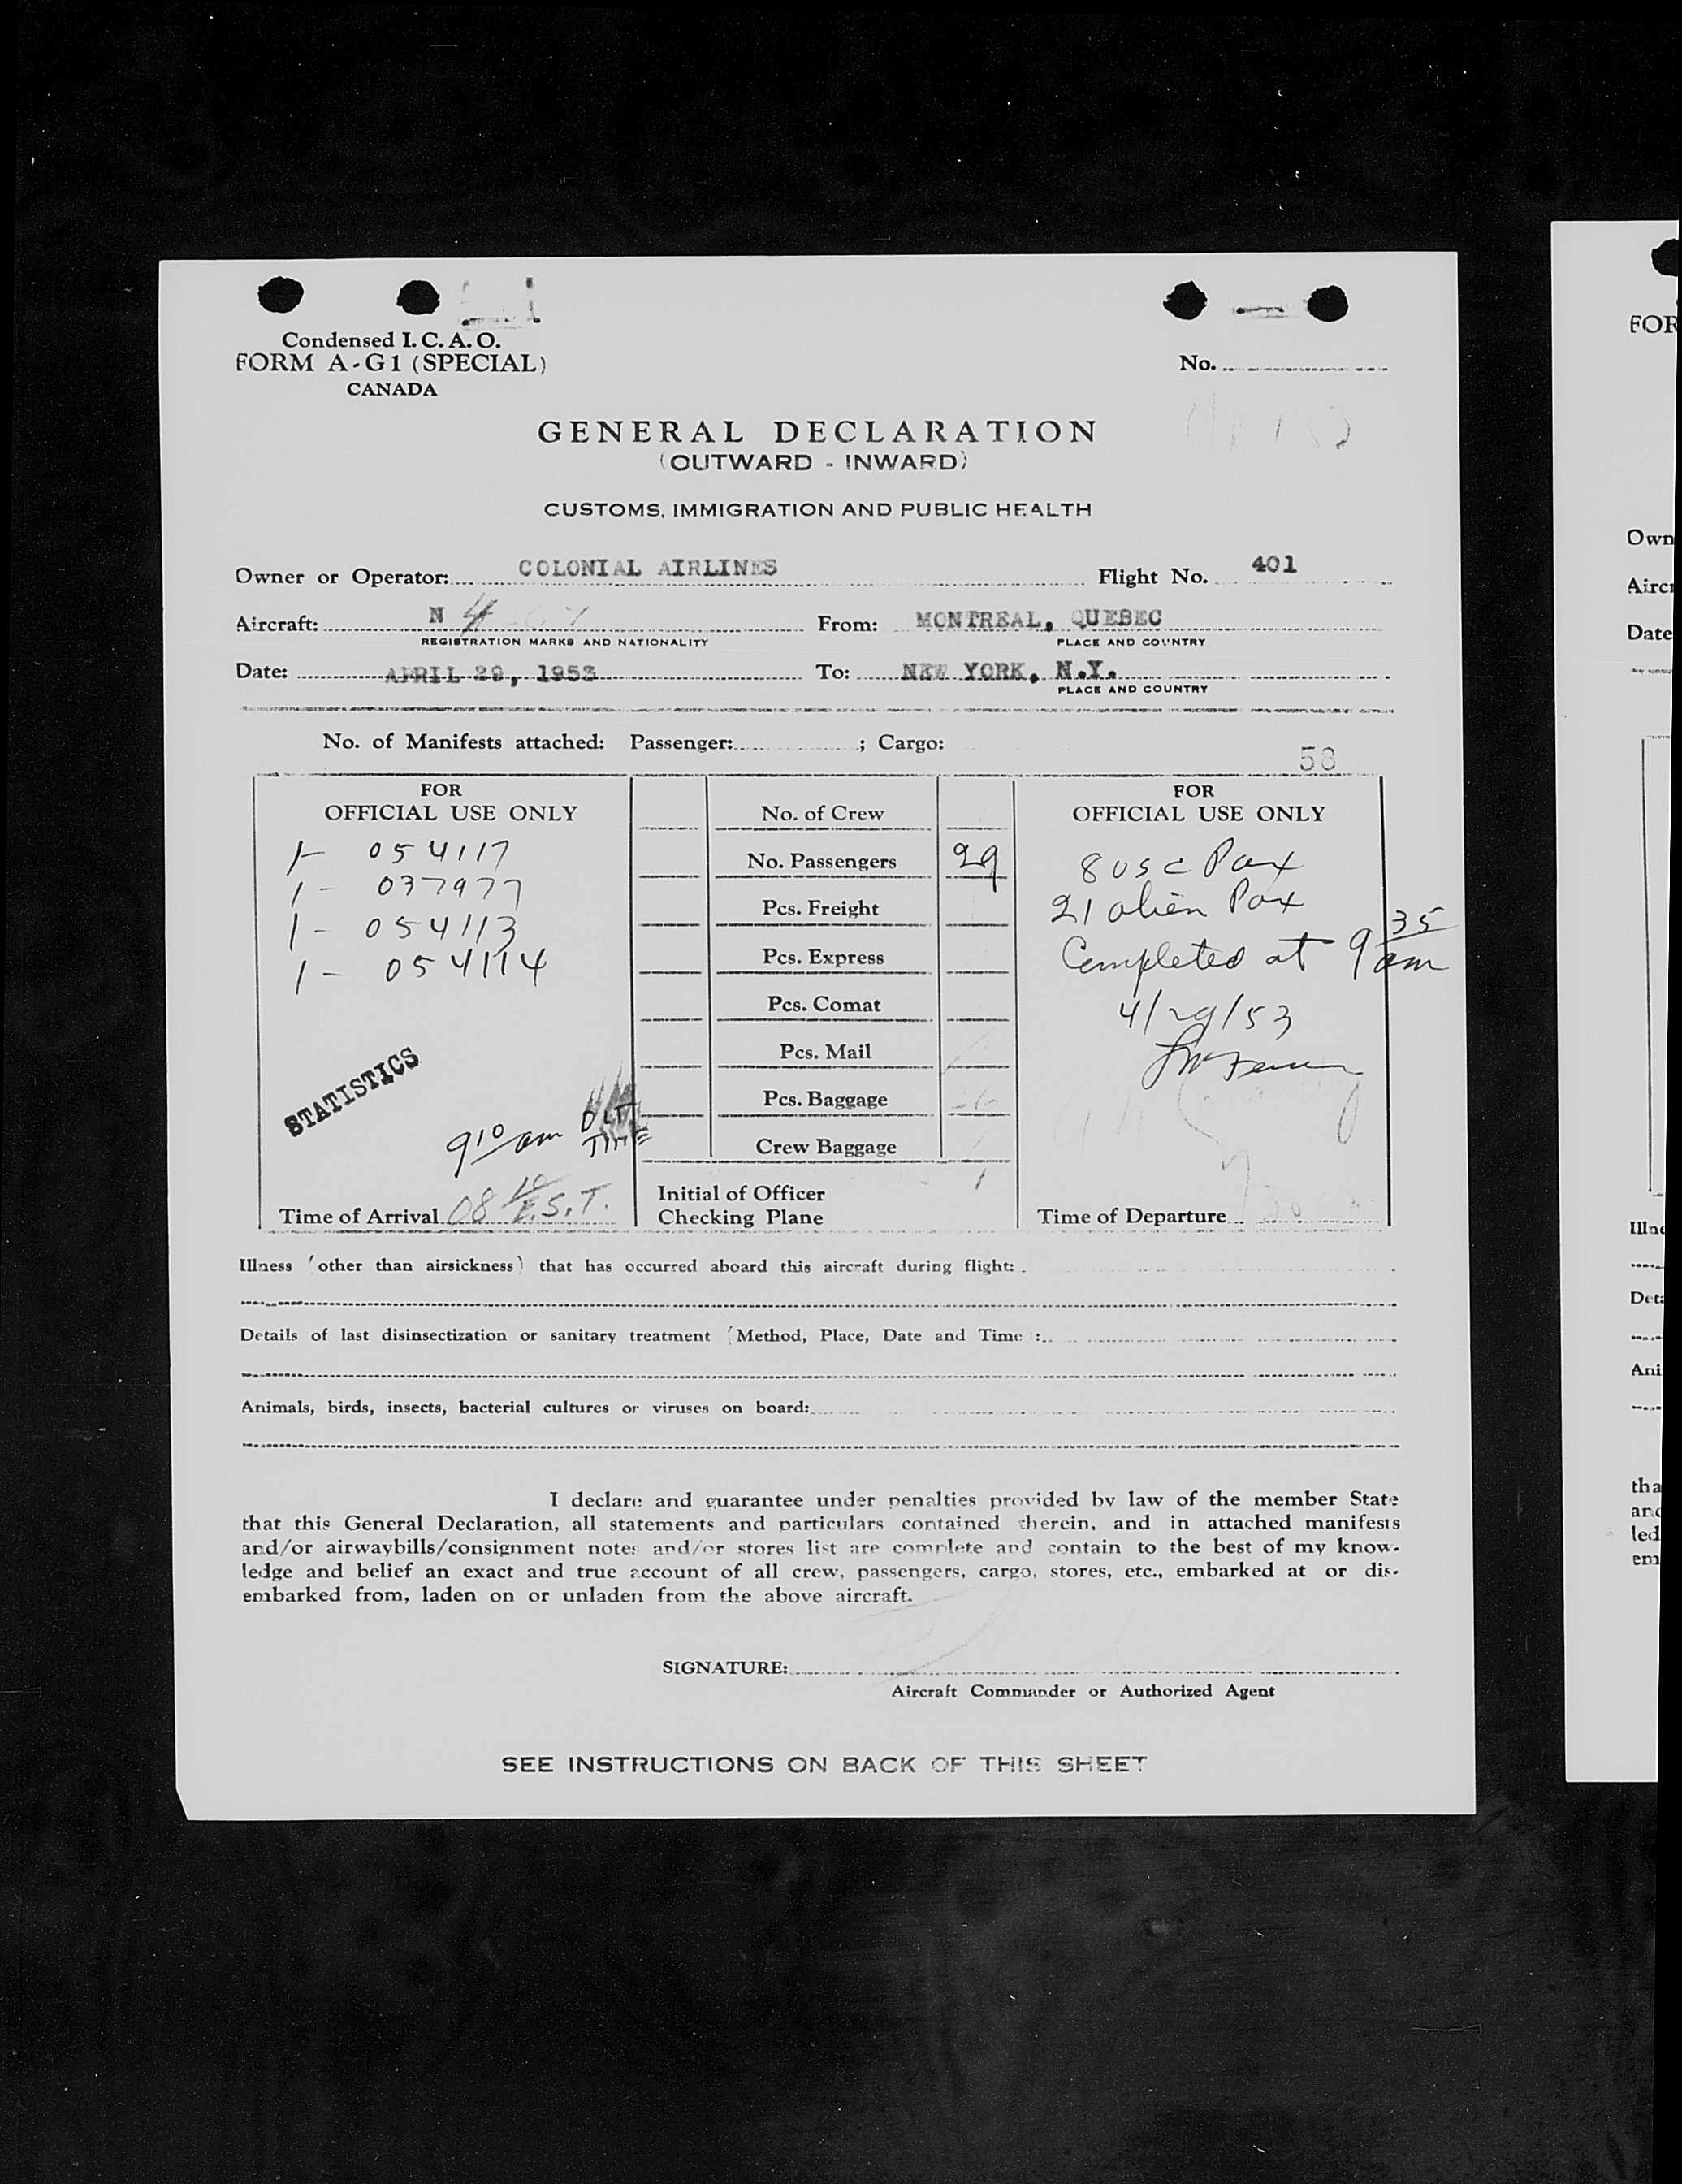 Condensed I.C.A.O.
FORM A-G1 (SPECIAL)
CANADA
No.
GENERAL DECLARATION
(OUTWARD - INWARD)
CUSTOMS, IMMIGRATION AND PUBLIC HEALTH
Owner or Operator: COLONIAL AIRLINES Flight No. 401
Aircraft: N 4 From: MONTREAL, QUEBEC
REGISTRATION MARKS AND NATIONALITY PLACE AND COUNTRY
Date: APRIL 29, 1953 To: NEW YORK, N.Y.
PLACE AND COUNTRY
No. of Manifests attached: Passenger: ; Cargo:
58
FOR
OFFICIAL USE ONLY
1- 054117
1- 037977
1- 054113
1- 054114
STATISTICS
9 10 am
TIME
Time of Arrival 08 10 E.S.T.
No. of Crew
No. Passengers 29
Pcs. Freight
Pcs. Express
Pcs. Comat
Pcs. Mail
Pcs. Baggage
Crew Baggage
Initial of Officer
Checking Plane
FOR
OFFICIAL USE ONLY
8 USC Pax
21 alien Pax
Completed at 9 35 am
4/29/53
Time of Departure
Illness (other than airsickness) that has occurred aboard this aircraft during flight:
Details of last disinsectization or sanitary treatment (Method, Place, Date and Time):
Animals, birds, insects, bacterial cultures or viruses on board:
I declare and guarantee under penalties provided by law of the member State
that this General Declaration, all statements and particulars contained therein, and in attached manifests
and/or airwaybills/consignment notes and/or stores list are complete and contain to the best of my know-
ledge and belief an exact and true account of all crew, passengers, cargo, stores, etc., embarked at or dis-
embarked from, laden on or unladen from the above aircraft.
SIGNATURE:
Aircraft Commander or Authorized Agent
SEE INSTRUCTIONS ON BACK OF THIS SHEET
FOR
Own
Airc
Date
Illne
Deta
Ani
tha
and
led
em